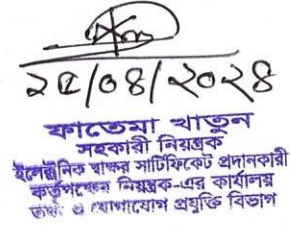 ২৫/০৪/২০২৪
ফাতেমা খাতুন
সহকারী নিয়ন্ত্রক
ইলেক্ট্রনিক স্বাক্ষর সার্টিফিকেট প্রদানকারী
কর্তৃপক্ষের নিয়ন্ত্রক-এর কার্যালয়
তথ্য ও যোগাযোগ প্রযুক্তি বিভাগ